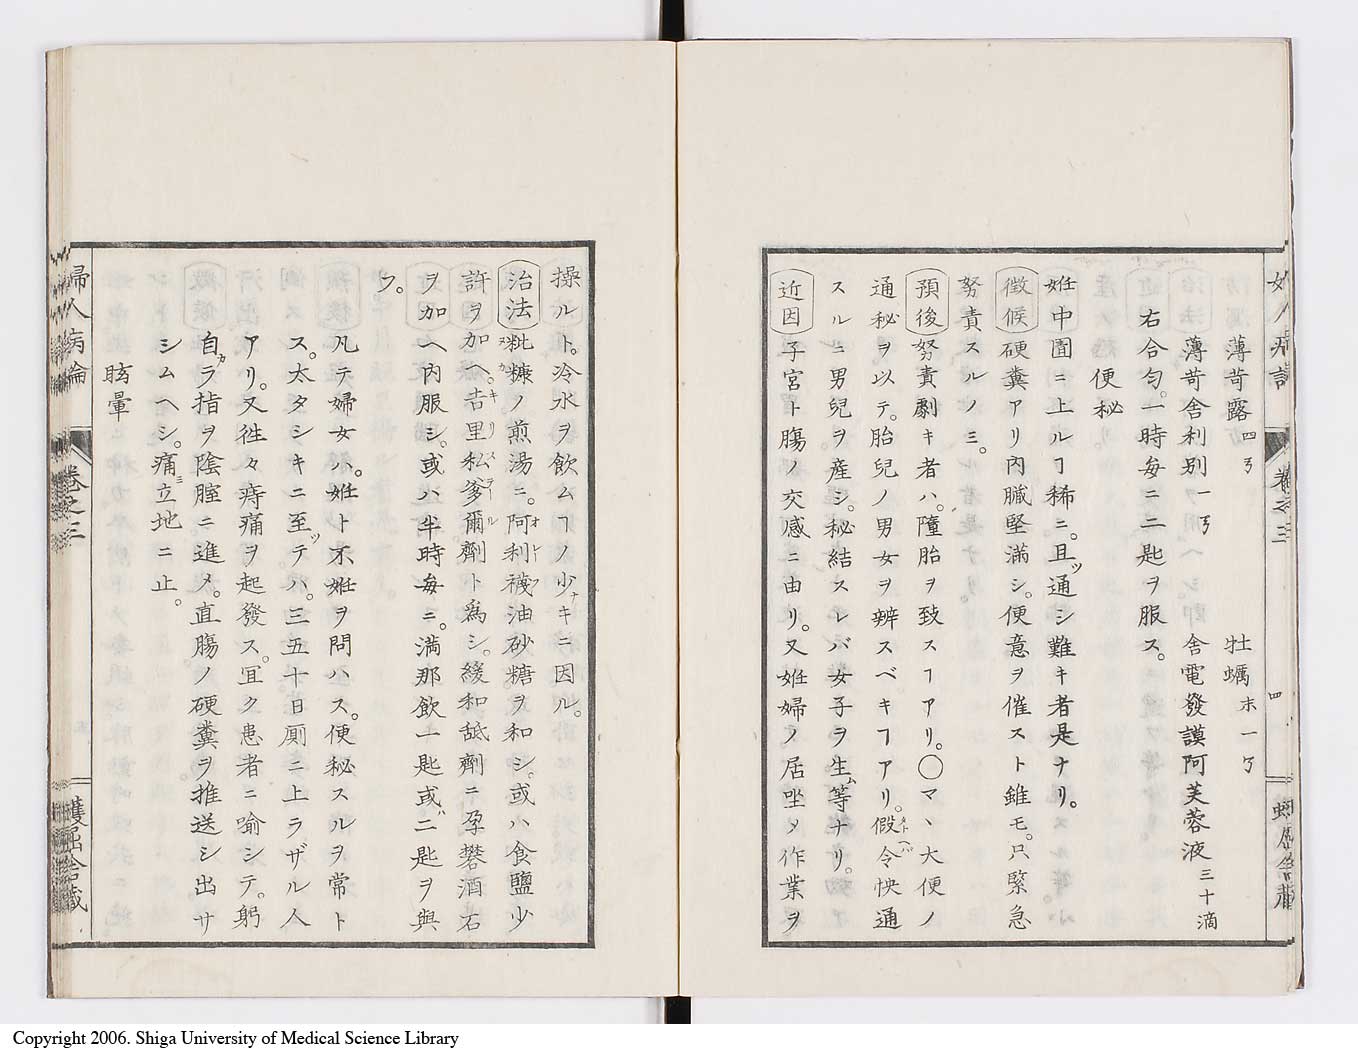 薄苛露 四㔾 牡蠣 ホ一㔾
薄苛舎利别 一㔾 舎電發謨阿芙蓉液 三十滴
右合匀。一時毎ニ二匙ヲ服ス。
便秘
妊中圊ニ上ルヿ稀ニ。且ッ通シ難キ者是ナリ。
徴候 硬糞アリ内臓堅満シ。便意ヲ催スト雖モ。只緊急
努責スルノミ。
預後 努責劇キ者ハ。墮胎ヲ致スヿアリ。〇マヽ大便ノ
通秘ヲ以テ。胎兒ノ男女ヲ辨スベキヿアリ。假令ヘバ快通
スルニ男兒ヲ産シ。秘結スレバ女子ヲ生ム等ナリ。
近因 子宮ト膓ノ交感ニ由リ。又妊婦ノ居坐メ作業ヲ
操ルト。冷水ヲ飲ムヿノ少ナキニ因ル。
治法 粃糠ノ煎湯ニ。阿利襪油砂糖ヲ和シ。或ハ食鹽少
許ヲ加ヘ。𠮷里私爹爾劑ト為シ。緩和舐劑ニ孕礬酒石
ヲ加ヘ内服シ。或ハ半時毎ニ。満那飲一匙或ハ二匙ヲ與
フ。
凡テ婦女ハ。妊ト不妊ヲ問ハス。便秘スルヲ常ト
ス。太タシキニ至ッテハ。三五十日厠ニ上ラザル人
アリ。又徃々痔痛ヲ起發ス。冝ク患者ニ喻シテ。躬
自カラ指ヲ陰腟ニ進メ。直膓ノ硬糞ヲ推送シ出サ
シムヘシ。痛ミ立地ニ止。
眩暈
婦人病論 卷之三 蠖屈舎藏
Copyright 2006. Shiga University of Medical Science Library